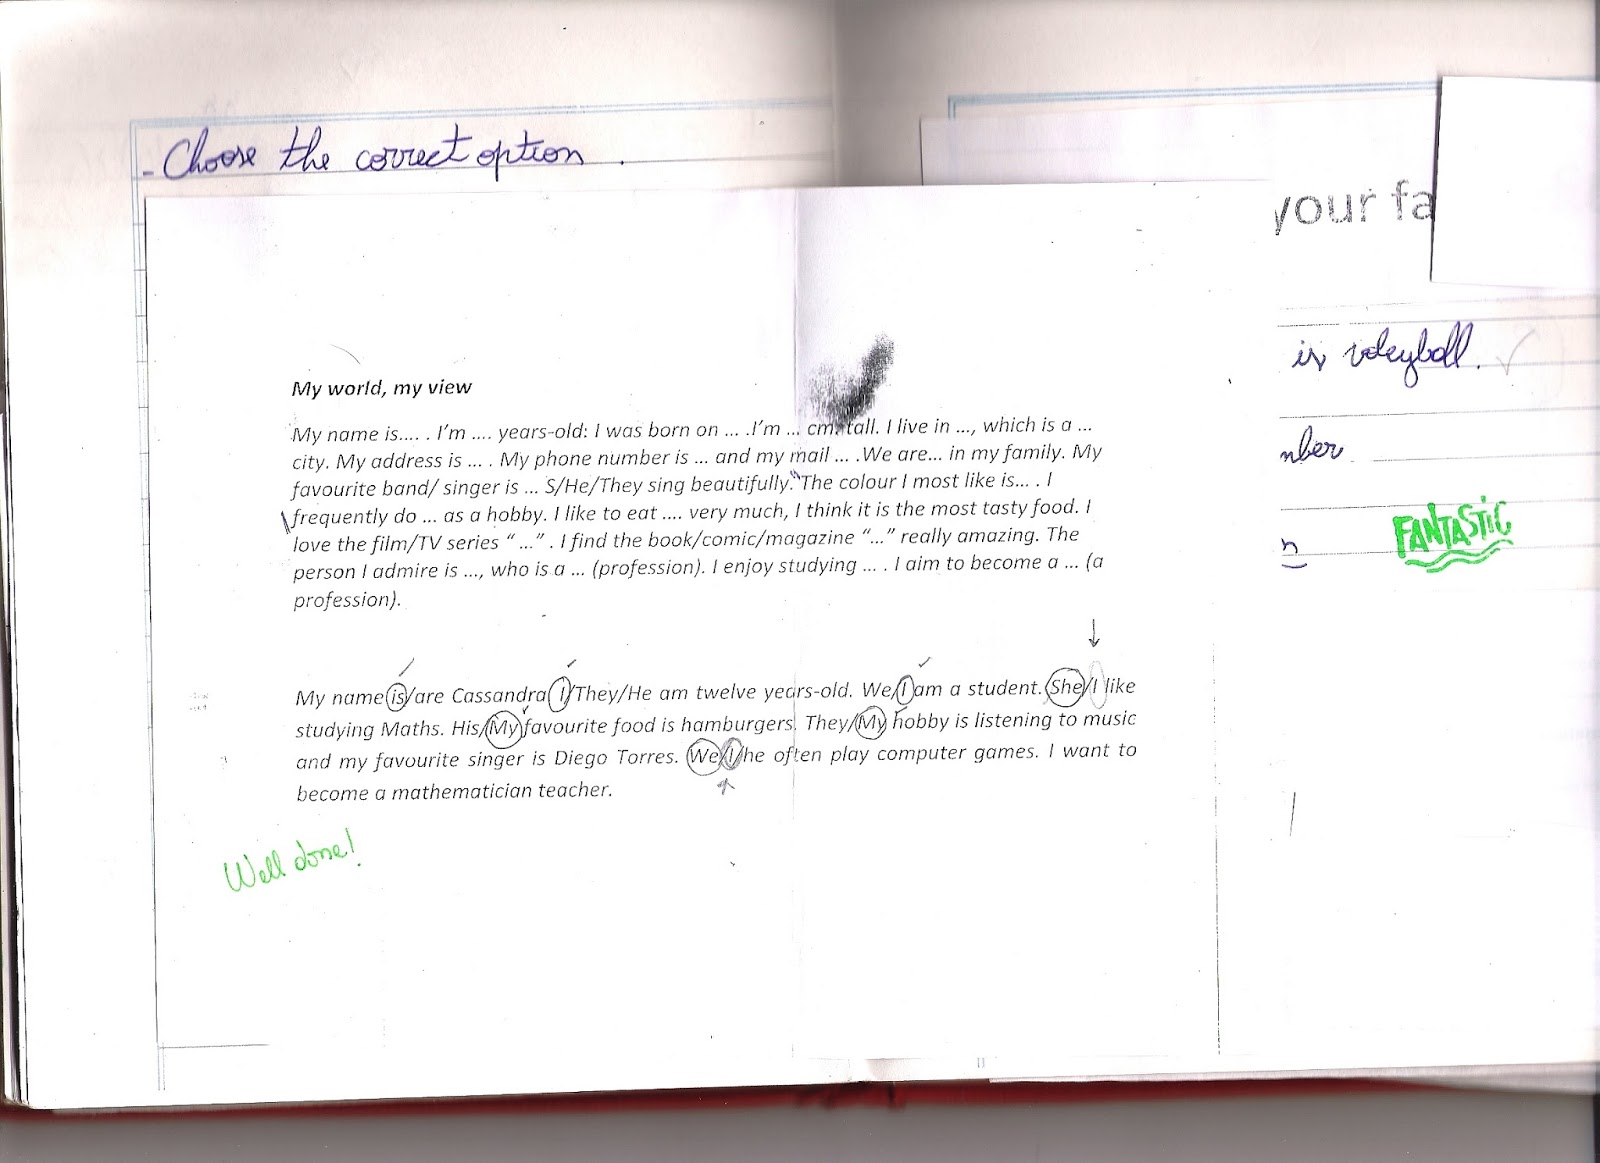 - Choose the correct option.
My world, my view
My name is.... . I'm .... years-old: I was born on ... .I'm ... cm. tall. I live in ..., which is a ...
city. My address is ... . My phone number is ... and my mail ... .We are... in my family. My
favourite band/ singer is ... S/He/They sing beautifully. The colour I most like is... . I
frequently do ... as a hobby. I like to eat .... very much, I think it is the most tasty food. I
love the film/TV series “ ...” . I find the book/comic/magazine “...” really amazing. The
person I admire is ..., who is a ... (profession). I enjoy studying ... . I aim to become a ... (a
profession).
My name is/are Cassandra I/They/He am twelve years-old. We/I am a student. She/I like
studying Maths. His/My favourite food is hamburgers. They/My hobby is listening to music
and my favourite singer is Diego Torres. We/I/he often play computer games. I want to
become a mathematician teacher.
Well done!
your fa
is voleyball.
mber
n
FANTASTIC